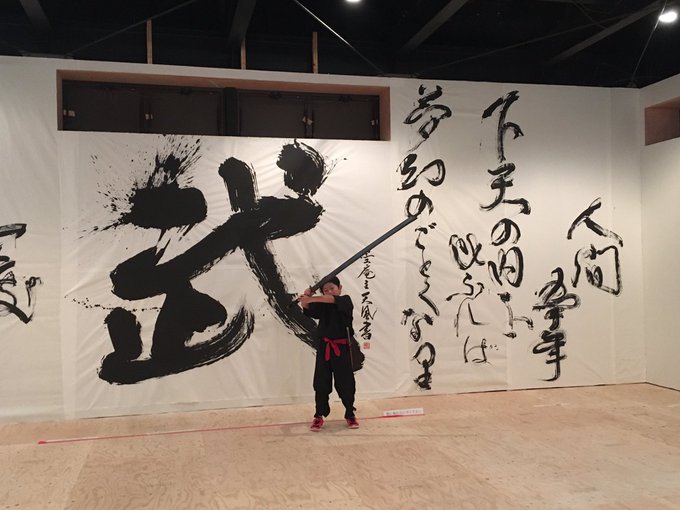 人間
五十年
下天の内を
比ぶれば
夢幻のごとくなり
武
庵主天風書